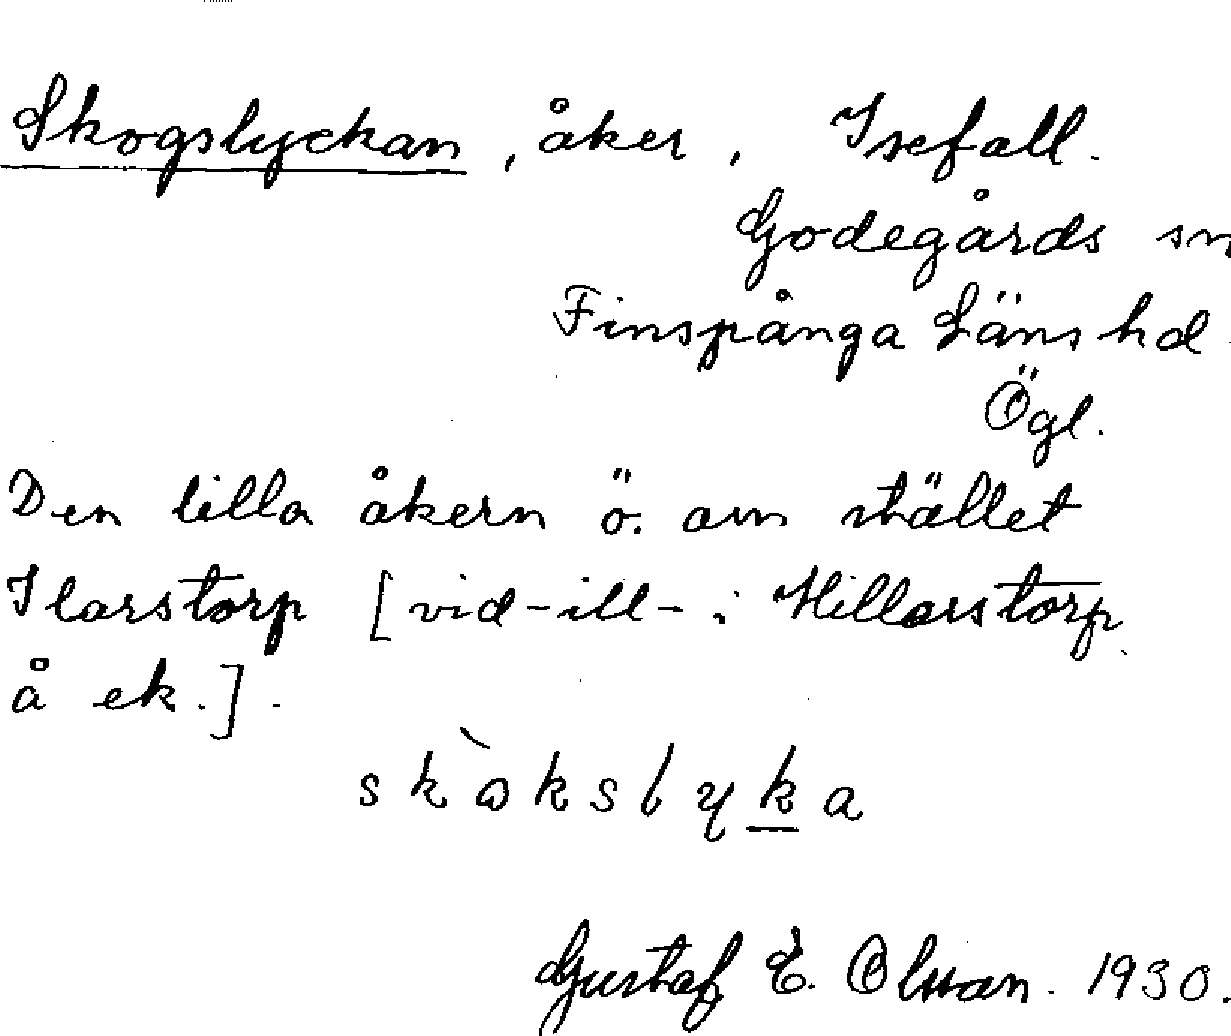 Skogslyckan, åker, Isefall.
Godegårds sn
Finspånga Läns hd.
Ögl.
Den lilla åkern ö. om stället
Ilarstorp [vid -ill- i Hillarstorp
å ek.].
skòkslyka
Gustaf E. Olsson. 1930.